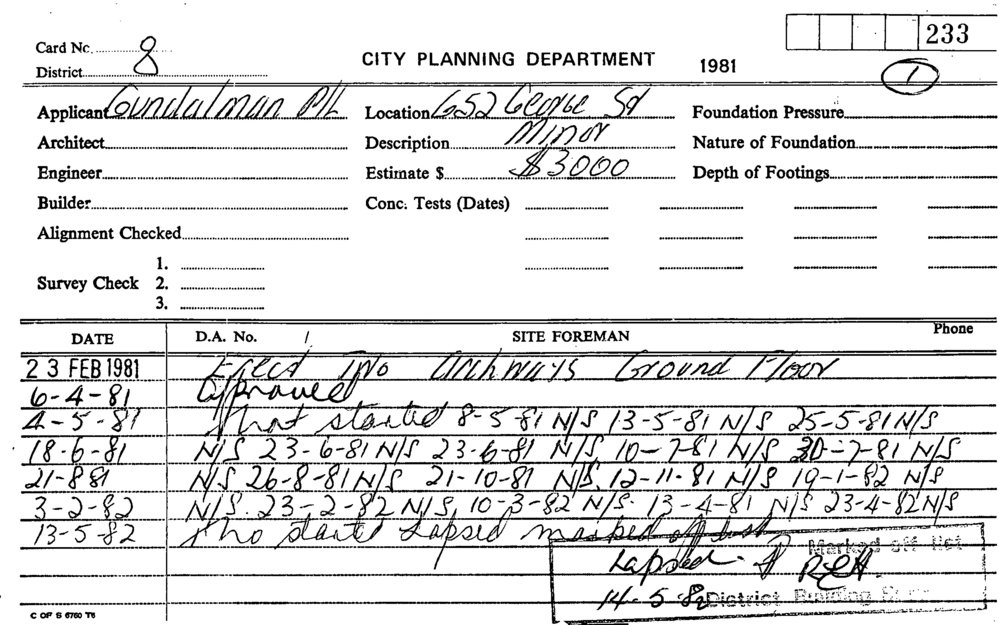 233
Card No. 8
CITY PLANNING DEPARTMENT 1981
District
1
Applicant Gundalman P/L Location 652 George St Foundation Pressure
Architect Description Minor Nature of Foundation
Engineer Estimate $ $3000 Depth of Footings
Builder Conc. Tests (Dates)
Alignment Checked
1.
Survey Check 2.
3.
DATE D.A. No. SITE FOREMAN Phone
23 FEB 1981 Erect Two Archways Ground Floor
6-4-81 Approved
4-5-81 Not started 8-5-81 N/S 13-5-81 N/S 25-5-81 N/S
18-6-81 N/S 23-6-81 N/S 23-6-81 N/S 10-7-81 N/S 30-7-81 N/S
21-8-81 N/S 26-8-81 N/S 21-10-81 N/S. 12-11-81 N/S 19-1-82 N/S
3-2-82 N/S. 23-2-82 N/S 10-3-82 N/S. 13-4-81 N/S 23-4-82 N/S
13-5-82 no started Lapsed marked off list
Marked off list
Lapsed
14-5-82 District Building
C OF S 6760 T6